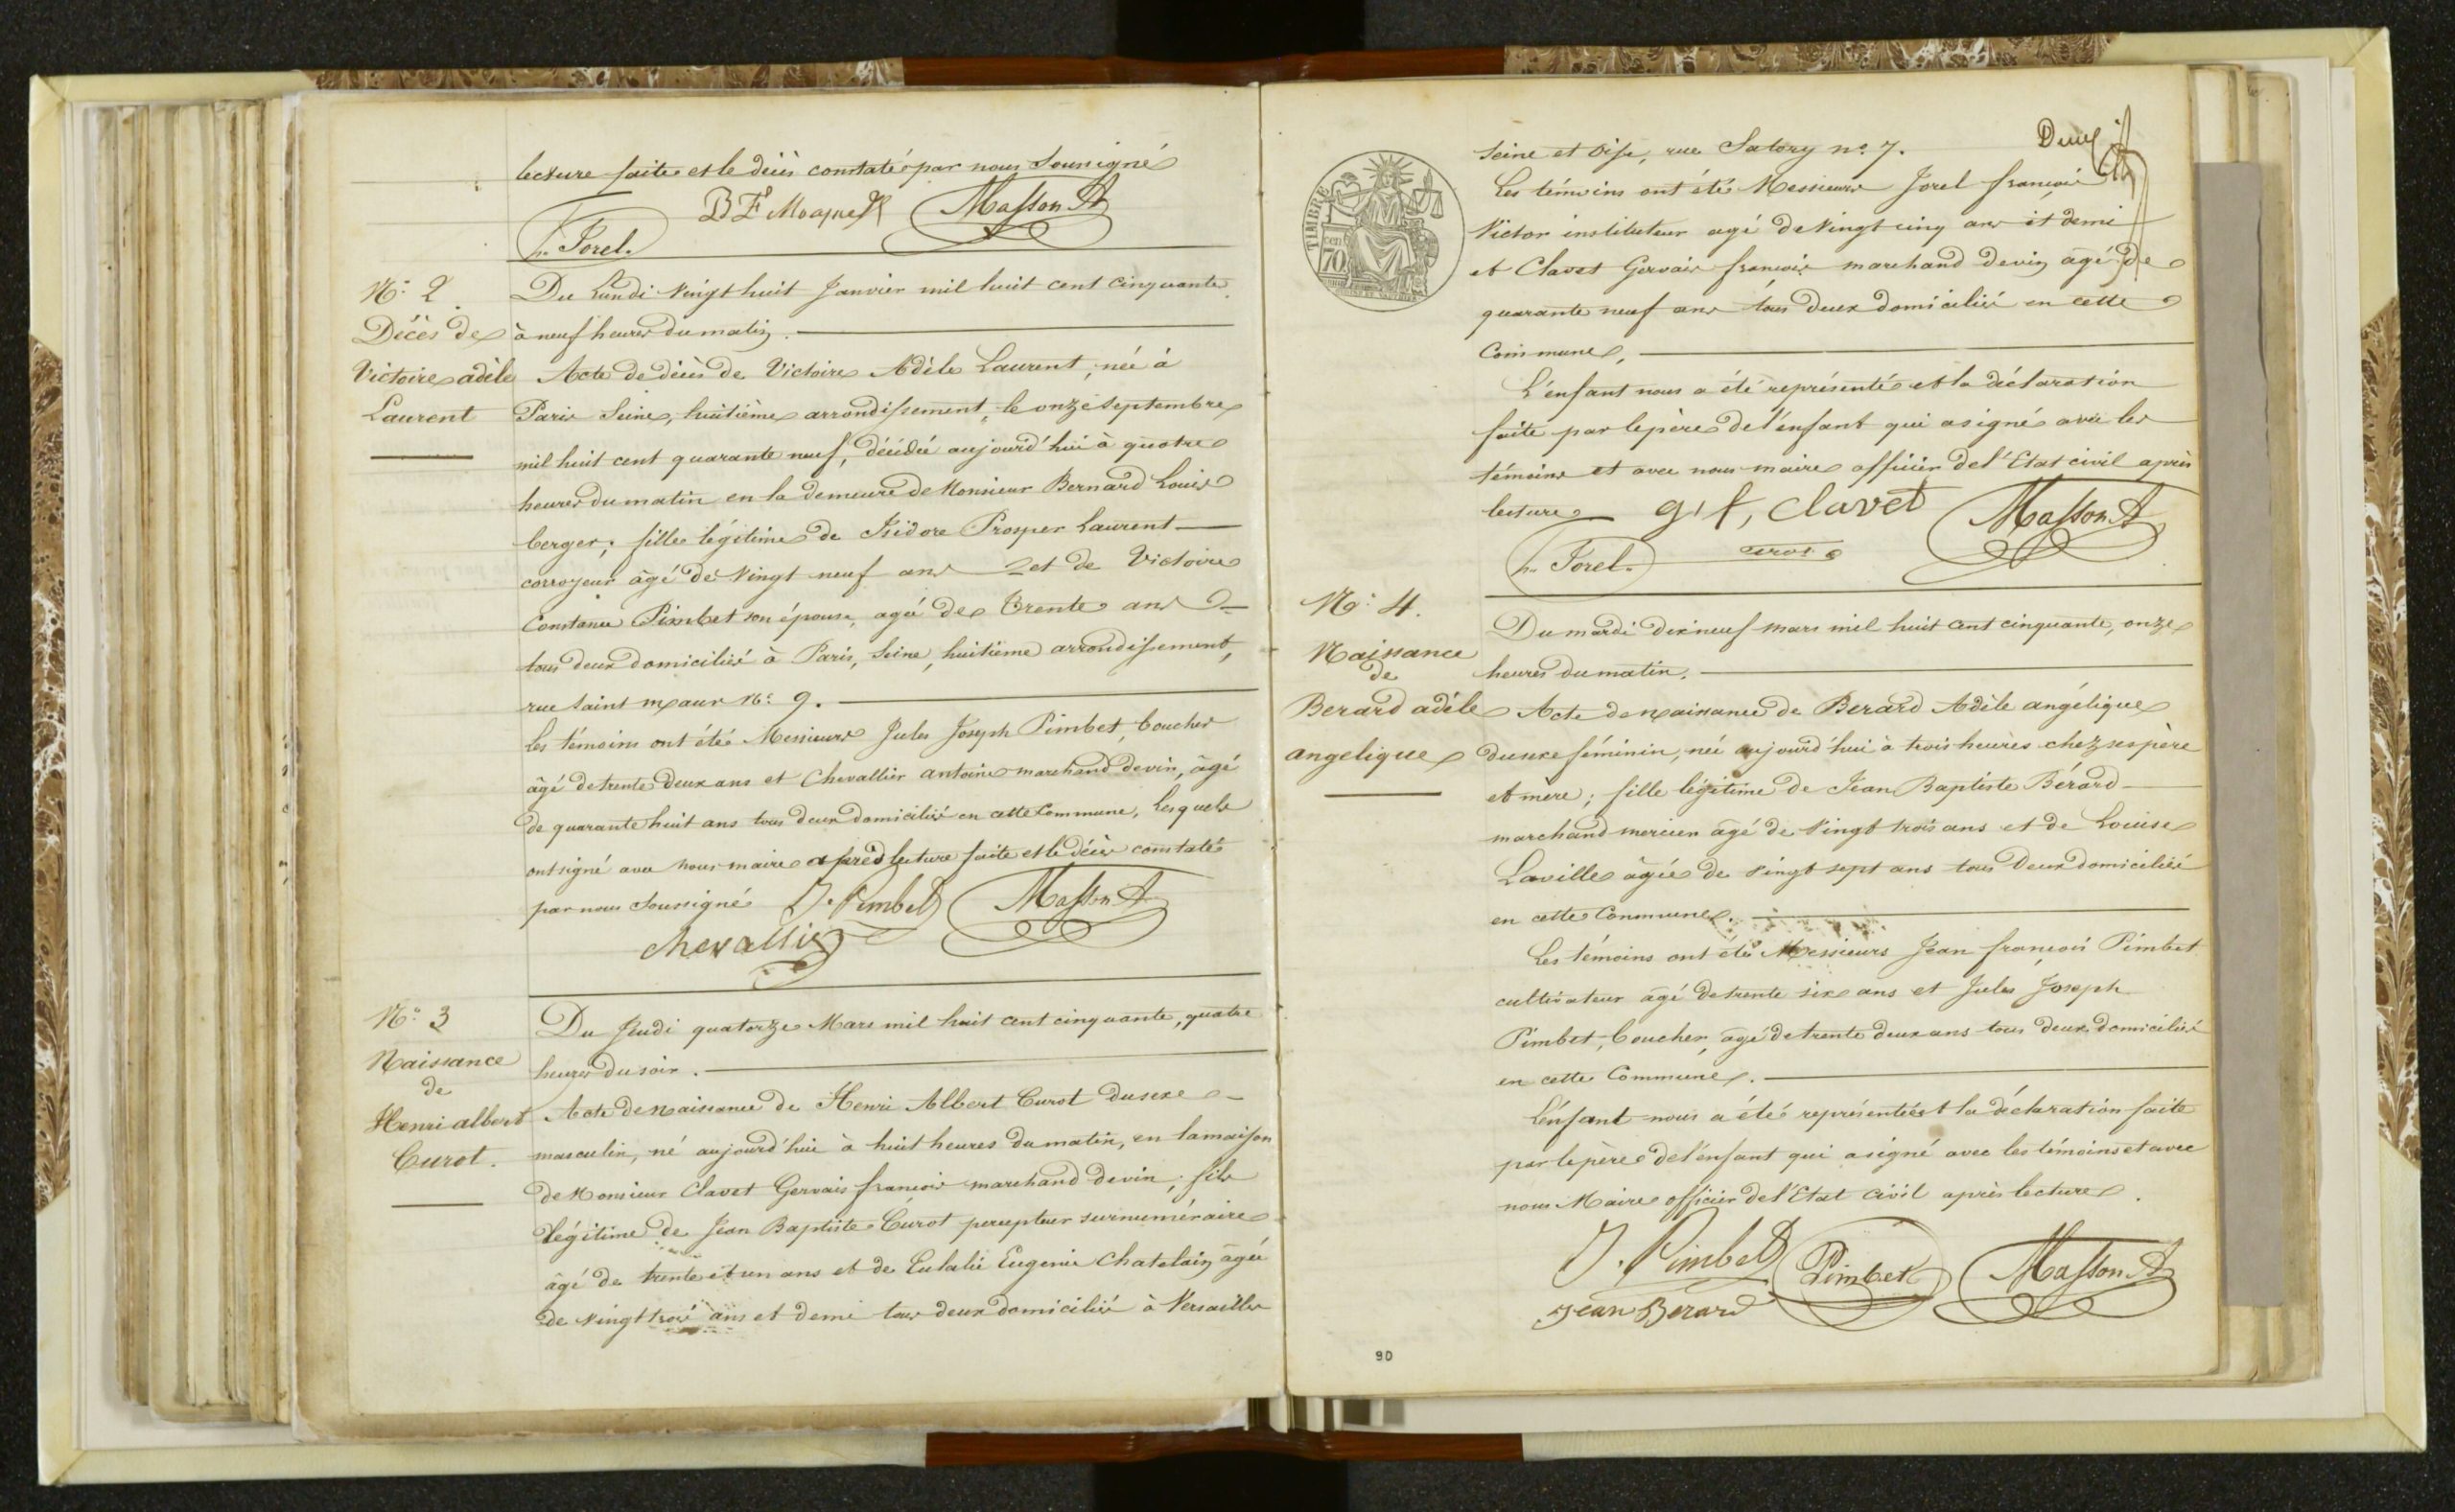 lecture faite et le décès constaté par nous Soussigné
Masson A
h. Jorel.
N.° 2
Décès de
Victoire adèle
Laurent
Du Lundi Vingt huit Janvier mil huit cent cinquante
à neuf heures du matin.
Acte de décès de Victoire Adèle Laurent, née à
Paris Seine, huitième arrondissement, le onze septembre
mil huit cent quarante neuf, décédée aujourd'hui à quatre
heures du matin en la demeure de Monsieur Bernard Louis
berger; fille légitime de Isidore Prosper Laurent
corroyeur âgé de Vingt neuf ans et de Victoire
Constance Pimbet son épouse, agée de Trente ans
tous deux domiciliés à Paris, Seine, huitième arrondissement,
rue Saint maur N° 9.
Les témoins ont été Messieurs Jules Joseph Pimbet, boucher
âgé de trente deux ans et Chevallier antoine marchand de vin, âgé
de quarante huit ans tous deux domiciliés en cette Commune, Lesquels
ont signé avec nous maire après lecture faite et le décès constaté
par nous Soussigné
J. Pimbet
Masson A
chevallier
N.° 3
Naissance
de
Henri albert
Curot.
Du Jeudi quatorze Mars mil huit cent cinquante, quatre
heures du soir.
Acte de naissance de Henri Albert Curot du sexe
masculin, né aujourd'hui à huit heures du matin, en la maison
de Monsieur Clavet Gervais françois marchand de vin, fils
légitime de Jean Baptiste Curot percepteur surnuméraire
âgé de trente et un ans et de Eulalie Eugenie Chatelain agée
de Vingt trois ans et demi tous deux domiciliés à Versailles
TIMBRE
70
Deux
Seine et Oise, rue Satory n°. 7.
Les témoins ont été Messieurs Jorel françois
Victor instituteur agé de Vingt cinq ans et demi
et Clavet Gervais françois marchand de vin agé de
quarante neuf ans tous deux domiciliés en cette
Commune,
L'enfant nous a été représenté et la déclaration
faite par le père de l'enfant qui a signé avec les
témoins et avec nous maire officier de l'Etat civil après
lecture
g. f, Clavet
Masson A
h. Jorel.
N.° 4.
Naissance
de
Berard adèle
angelique
Du mardi dix neuf Mars mil huit cent cinquante, onze
heures du matin.
Acte de naissance de Berard Adèle angélique
du sexe féminin, née aujourd'hui à trois heures chez ses père
et mère; fille légitime de Jean Baptiste Bérard
marchand mercier âgé de Vingt trois ans et de Louise
Laville âgée de vingt sept ans tous deux domiciliés
en cette Commune.
Les témoins ont été Messieurs Jean françois Pimbet
cultivateur âgé de trente six ans et Jules Joseph
Pimbet, boucher, agé de trente deux ans tous deux domiciliés
en cette Commune.
L'énfant nous a été représentée et la déclaration faite
par le père de l'enfant qui a signé avec les témoins et avec
nous Maire officier de l'Etat civil après lecture.
J. Pimbet
Pimbet
Masson A
Jean Berard
90